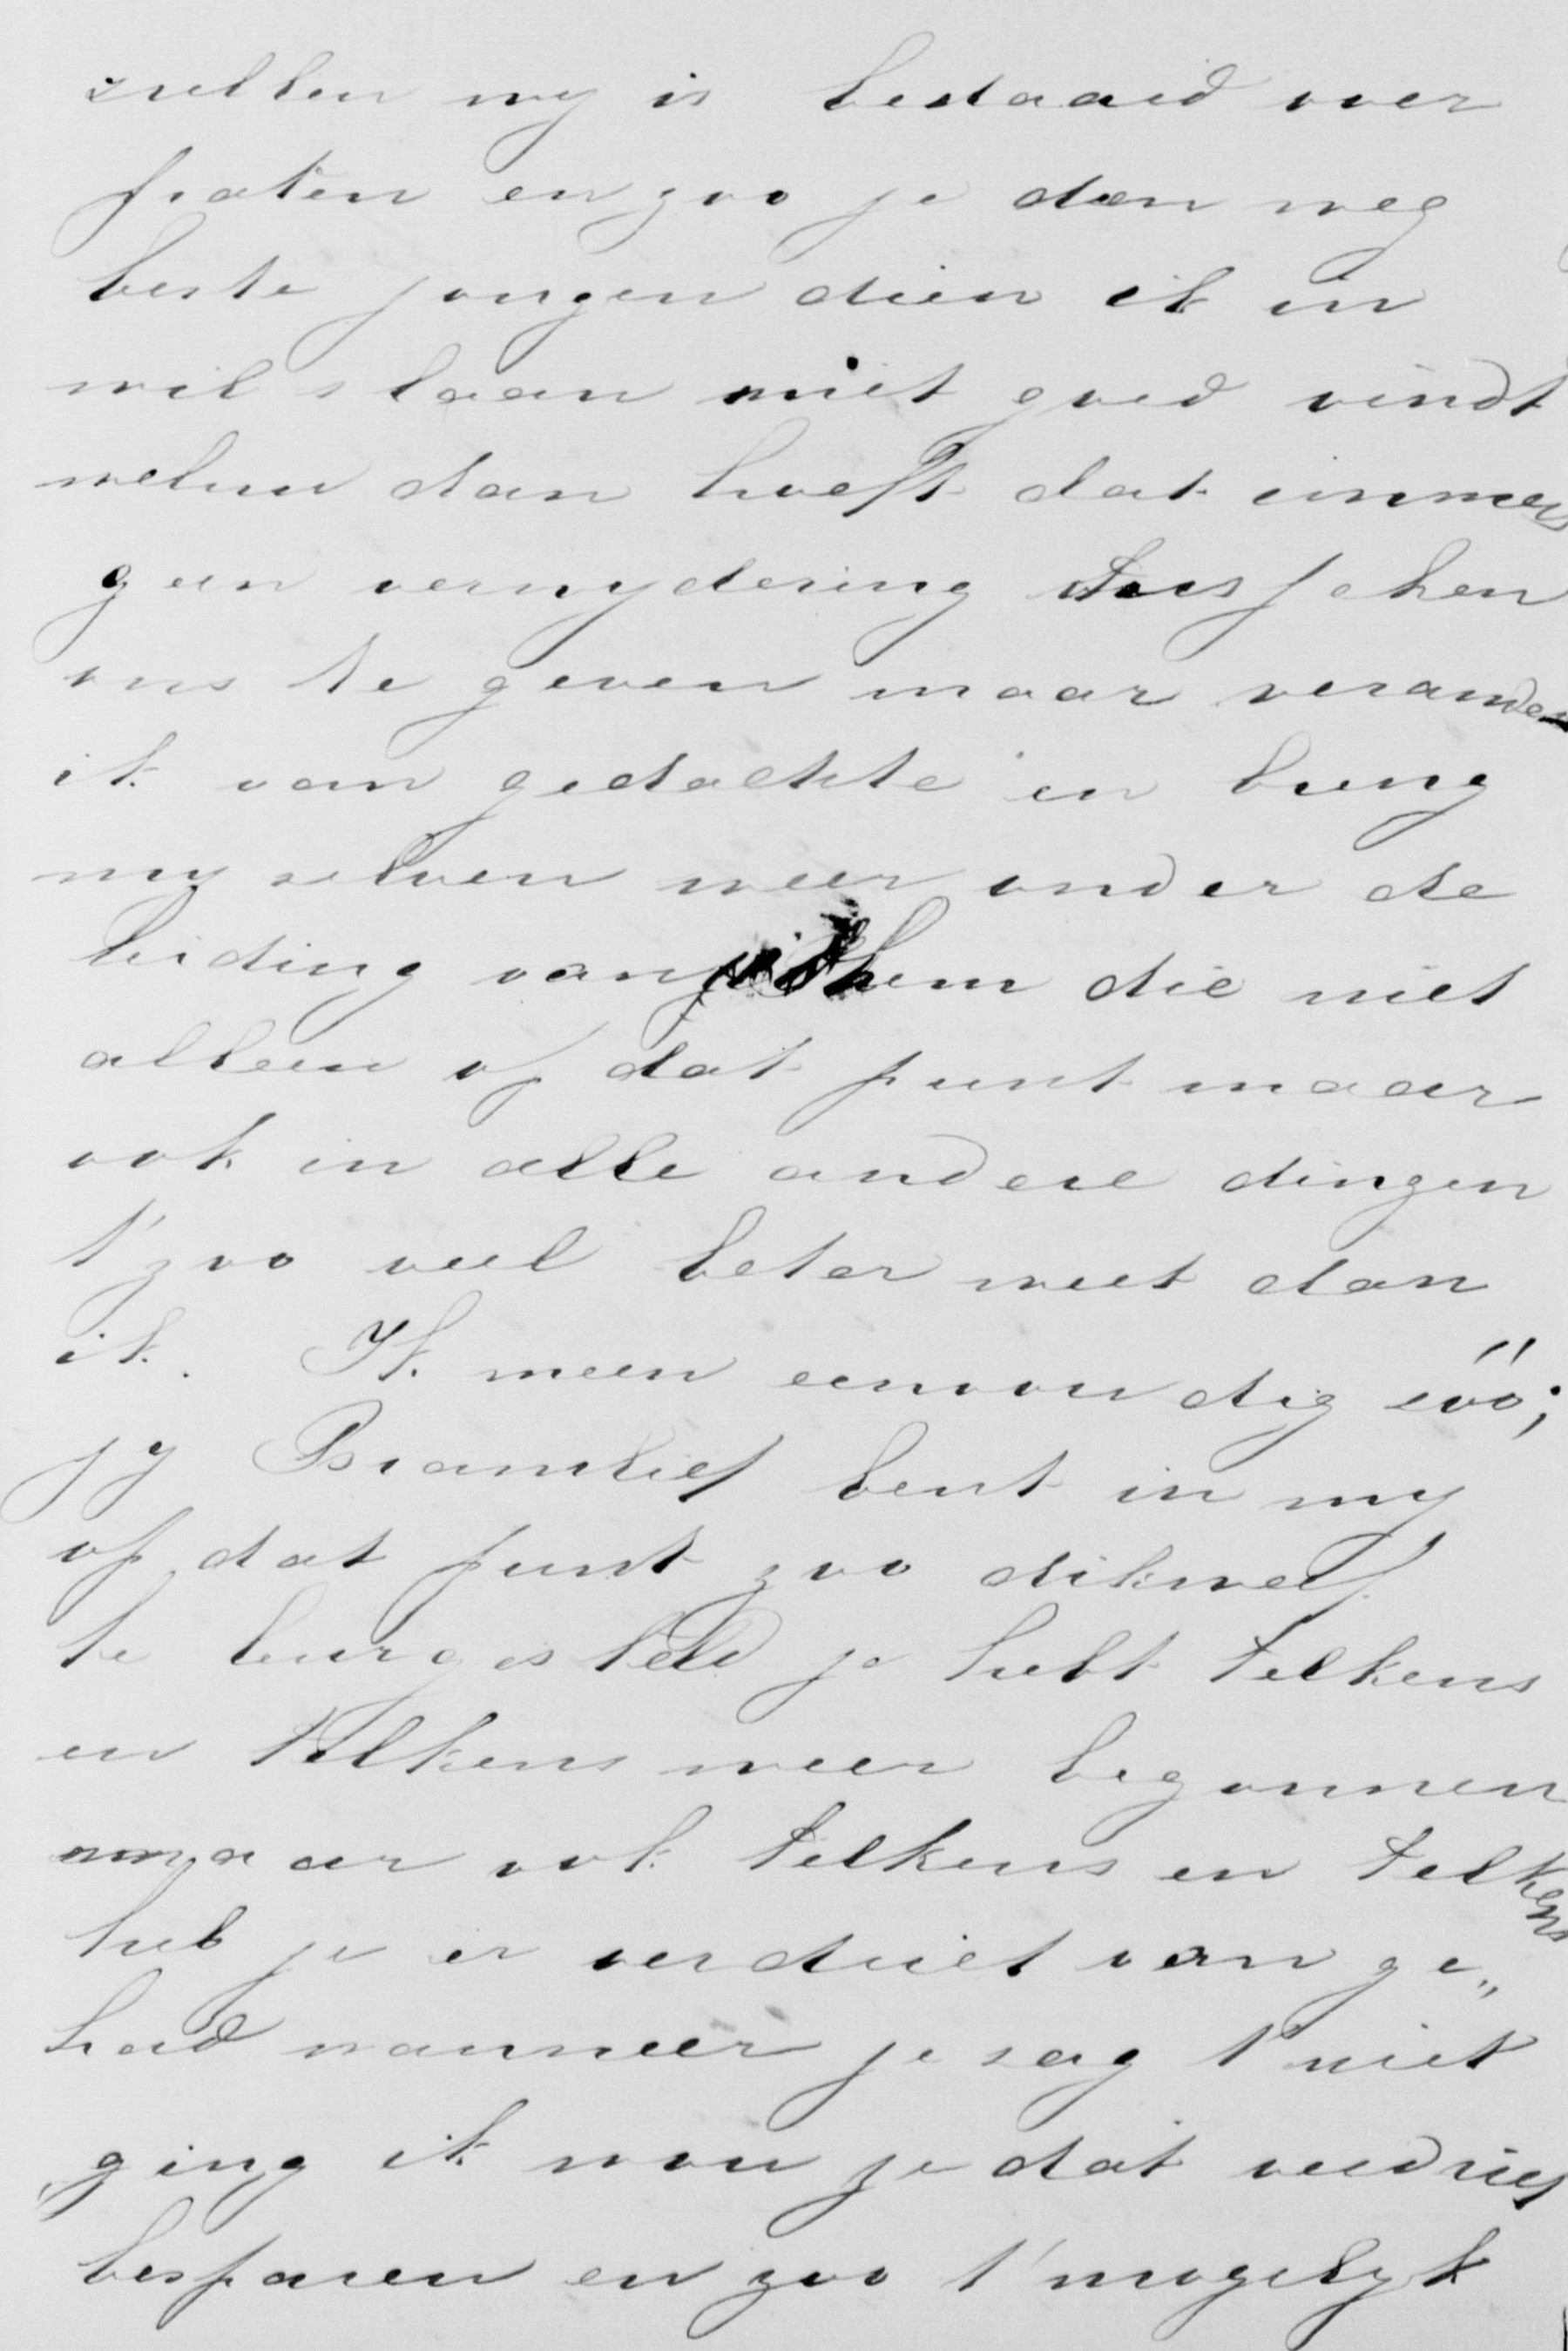 zullen wy is bedaard over
praten en zoo je den weg
beste jongen dien ik in
wil slaan niet goed vindt
welnu dan hoeft dat immers
geen verwydering tusschen
ons te geven maar verander
ik van gedachte en breng
my zelven weer onder de
leiding van hem die niet
alleen op dat punt maar
ook in alle andere dingen
t'zoo veel beter weet dan
ik. Ik meen eenvoudig zóó;
jy Bramlief bent in my
op dat punt zoo dikwerf
te leurgesteld je hebt telkens
en telkens weer begonnen
maar ook telkens en telkens
heb je er verdriet van ge„
had wanneer je zag t'niet
„ging ik wou je dat verdriet
besparen en zoo t'mogelyk